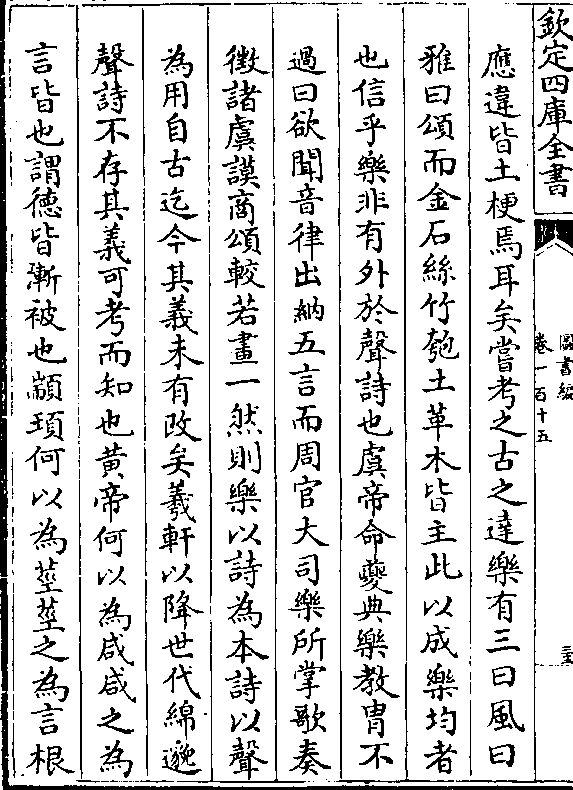 欽定四庫全書
圖書編
卷一百十五
應違皆土梗焉耳矣嘗考之古之達樂有三曰風曰
雅曰頌而金石絲竹匏土革木皆主此以成樂均者
也信乎樂非有外於聲詩也虞帝命夔典樂教胄不
過曰欲聞音律出納五言而周官大司樂所掌歌奏
徵諸虞謨商頌較若畫一然則樂以詩為本詩以聲
為用自古迄今其義未有改矣羲軒以降世代綿邈
聲詩不存其義可考而知也黄帝何以為咸咸之為
言皆也謂德皆漸被也顓頊何以為莖莖之為言根